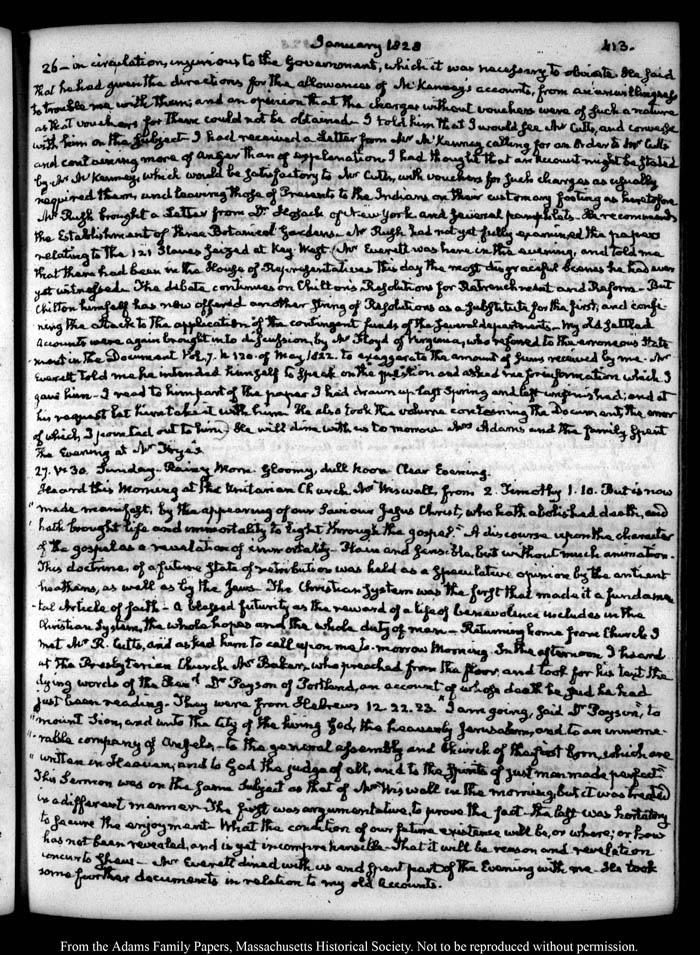 January 1828
413.
26 – in circulation, injurious to the Government, which it was necessary to obviate. He said
that he had given the directions for the allowances of McKenney's accounts, from an unwillingness
to trouble me with them; and an opinion that the charges without vouchers were of such a nature
as that vouchers for them could not be obtained – I told him that I would see Mr Cutts, and converse
with him on the subject – I had received a Letter from Mr McKenney calling for an Order to Mr Cutts
and containing more of anger than of explanation. I had thought that an account might be stated
by Mr McKenney, which would be satisfactory to Mr Cutts, with vouchers for such charges as usually
required them, and leaving those of Presents to the Indians on their customary footing as heretofore
Mr Rush brought a Letter from Dr Hosack of New York and several pamphlets. He recommends
the Establishment of three Botanical Gardens. Mr Rush had not yet fully examined the papers
relating to the 121 Slaves seized at Key West. (Mr Everett was here in the evening, and told me
that there had been in the House of Representatives this day the most disgraceful scenes he had ever
yet witnessed. The debate continues on Chilton's Resolutions for Retrenchment and Reform – But
Chilton himself has now offered another string of Resolutions as a substitute for the first, and confi-
ning the attack to the application of the contingent funds of the several departments – My old settled
Accounts were again brought into discussion, by Mr Floyd of Virginia, who referred to the erroneous State
ment in the Document Vol. 7. N 120. of May 1822. to exaggerate the amount of sums received by me – Mr
Everett told me he intended himself to speak on the question and asked me for information which I
gave him – I read to him part of the paper I had drawn up last Spring and left unfinished; and at
his request let him take it with him. He also took the volume containing the Document, the error
of which I pointed out to him.) He will dine with us to morrow. Mrs Adams and the family spent
the Evening at Mr Frye's
27. V. 30. Sunday. Rainy Morn. Gloomy, dull Noon Clear Evening.
Heard this Morning at the Unitarian Church, Mr Wiswall, from 2. Timothy 1.10. But is now
"made manifest, by the appearing of our Saviour Jesus Christ, who hath abolished death, and
"hath brought life and immortality to light through the gospel." A discourse upon the character
of the gospel as a revelation of immortality. Plain and sensible, but without much animation.
This doctrine, of a future state of retribution was held as a speculative opinion by the antient
heathens, as well as by the Jews – The Christian System was the first that made it a fundamen
tal Article of faith – A blessed futurity as the reward of a life of benevolence includes in the
Christian System, the whole hopes and the whole duty of man – Returning home from Church I
met Mr R. Cutts, and asked him to call upon me to-morrow Morning. In the afternoon I heard
at the Presbyterian Church Mr Baker, who preached from the floor, and took for his text the
dying words of the Revd Dr Payson of Portland, an account of whose death he said he had
just been reading. They were from Hebrews 12. 22. 23. "I am going, said Dr Payson, to
"mount Sion, and unto the City of the living God, the heavenly Jerusalem, and to an innume-
"rable company of Angels, – to the general assembly and Church of the first born, which are
"written in Heaven; and to God the judge of all, and to the Spirits of just men made perfect"
This Sermon was on the same subject as that of Mr Wiswall in the morning, but it was treated
in a different manner. The first was argumentative, to prove the fact – the last was hortatory
to secure the enjoyment – What the condition of our future existence will be, or where; or how
has not been revealed, and is yet incomprehensible – That it will be reason and revelation
concur to shew – Mr Everett dined with us and spent part of the Evening with me – He took
some further documents in relation to my old Accounts.
From the Adams Family Papers, Massachusetts Historical Society. Not to be reproduced without permission.